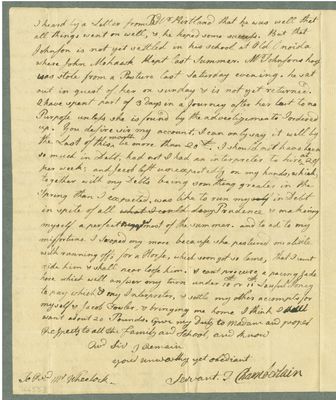 I heard by a Letter from Mr Kirtland that he was well that
all things went on well, & he hoped some success. But that
Johnson is not yet settled in his school at Old Onoida
where John Mohawk kept last Summer. Mr Johnsons horse
was stole from a Pasture last Saturday evening. he sat
out in quest of her on sunday & is not yet returned.
I have spent part of 3 Days on a Journey after her but to no
Purpose unless she is found by the advertisements I ordered
up. You desire sir my account. I can only say it will by
the Last of this month be more than 20 I should not have been
so much in debt, had not I had an interpreter to hire at
per week: and Jacob left unexpectedly on my hands, which
together with my Debts being something greater in the
Spring than I expected, was like to run my self in Debt
in spite of all Prudence & making
myself a perfect most of the summer. and to ad to my
misfortune I swoped my mare because she pastured on obstle
with running off; for a Horse, which soon got so lame, that I cant
ride him & shall near loose him; & cant procure a pacing Jade
here which will answer my turn under 10 or 11 Lawful Money
to pay which & my Interpreter, & settle my other accompts for
myself & Jacob Fowler. & bringing me home I think I shall
want about 20 Pounds. Give my Duty to Madam and proper
Respects to all the Family and School, and know
Rev Sir I remain
your unworthy yet obediant
Servant. T Chamberlain
To Revd Mr Wheelock.